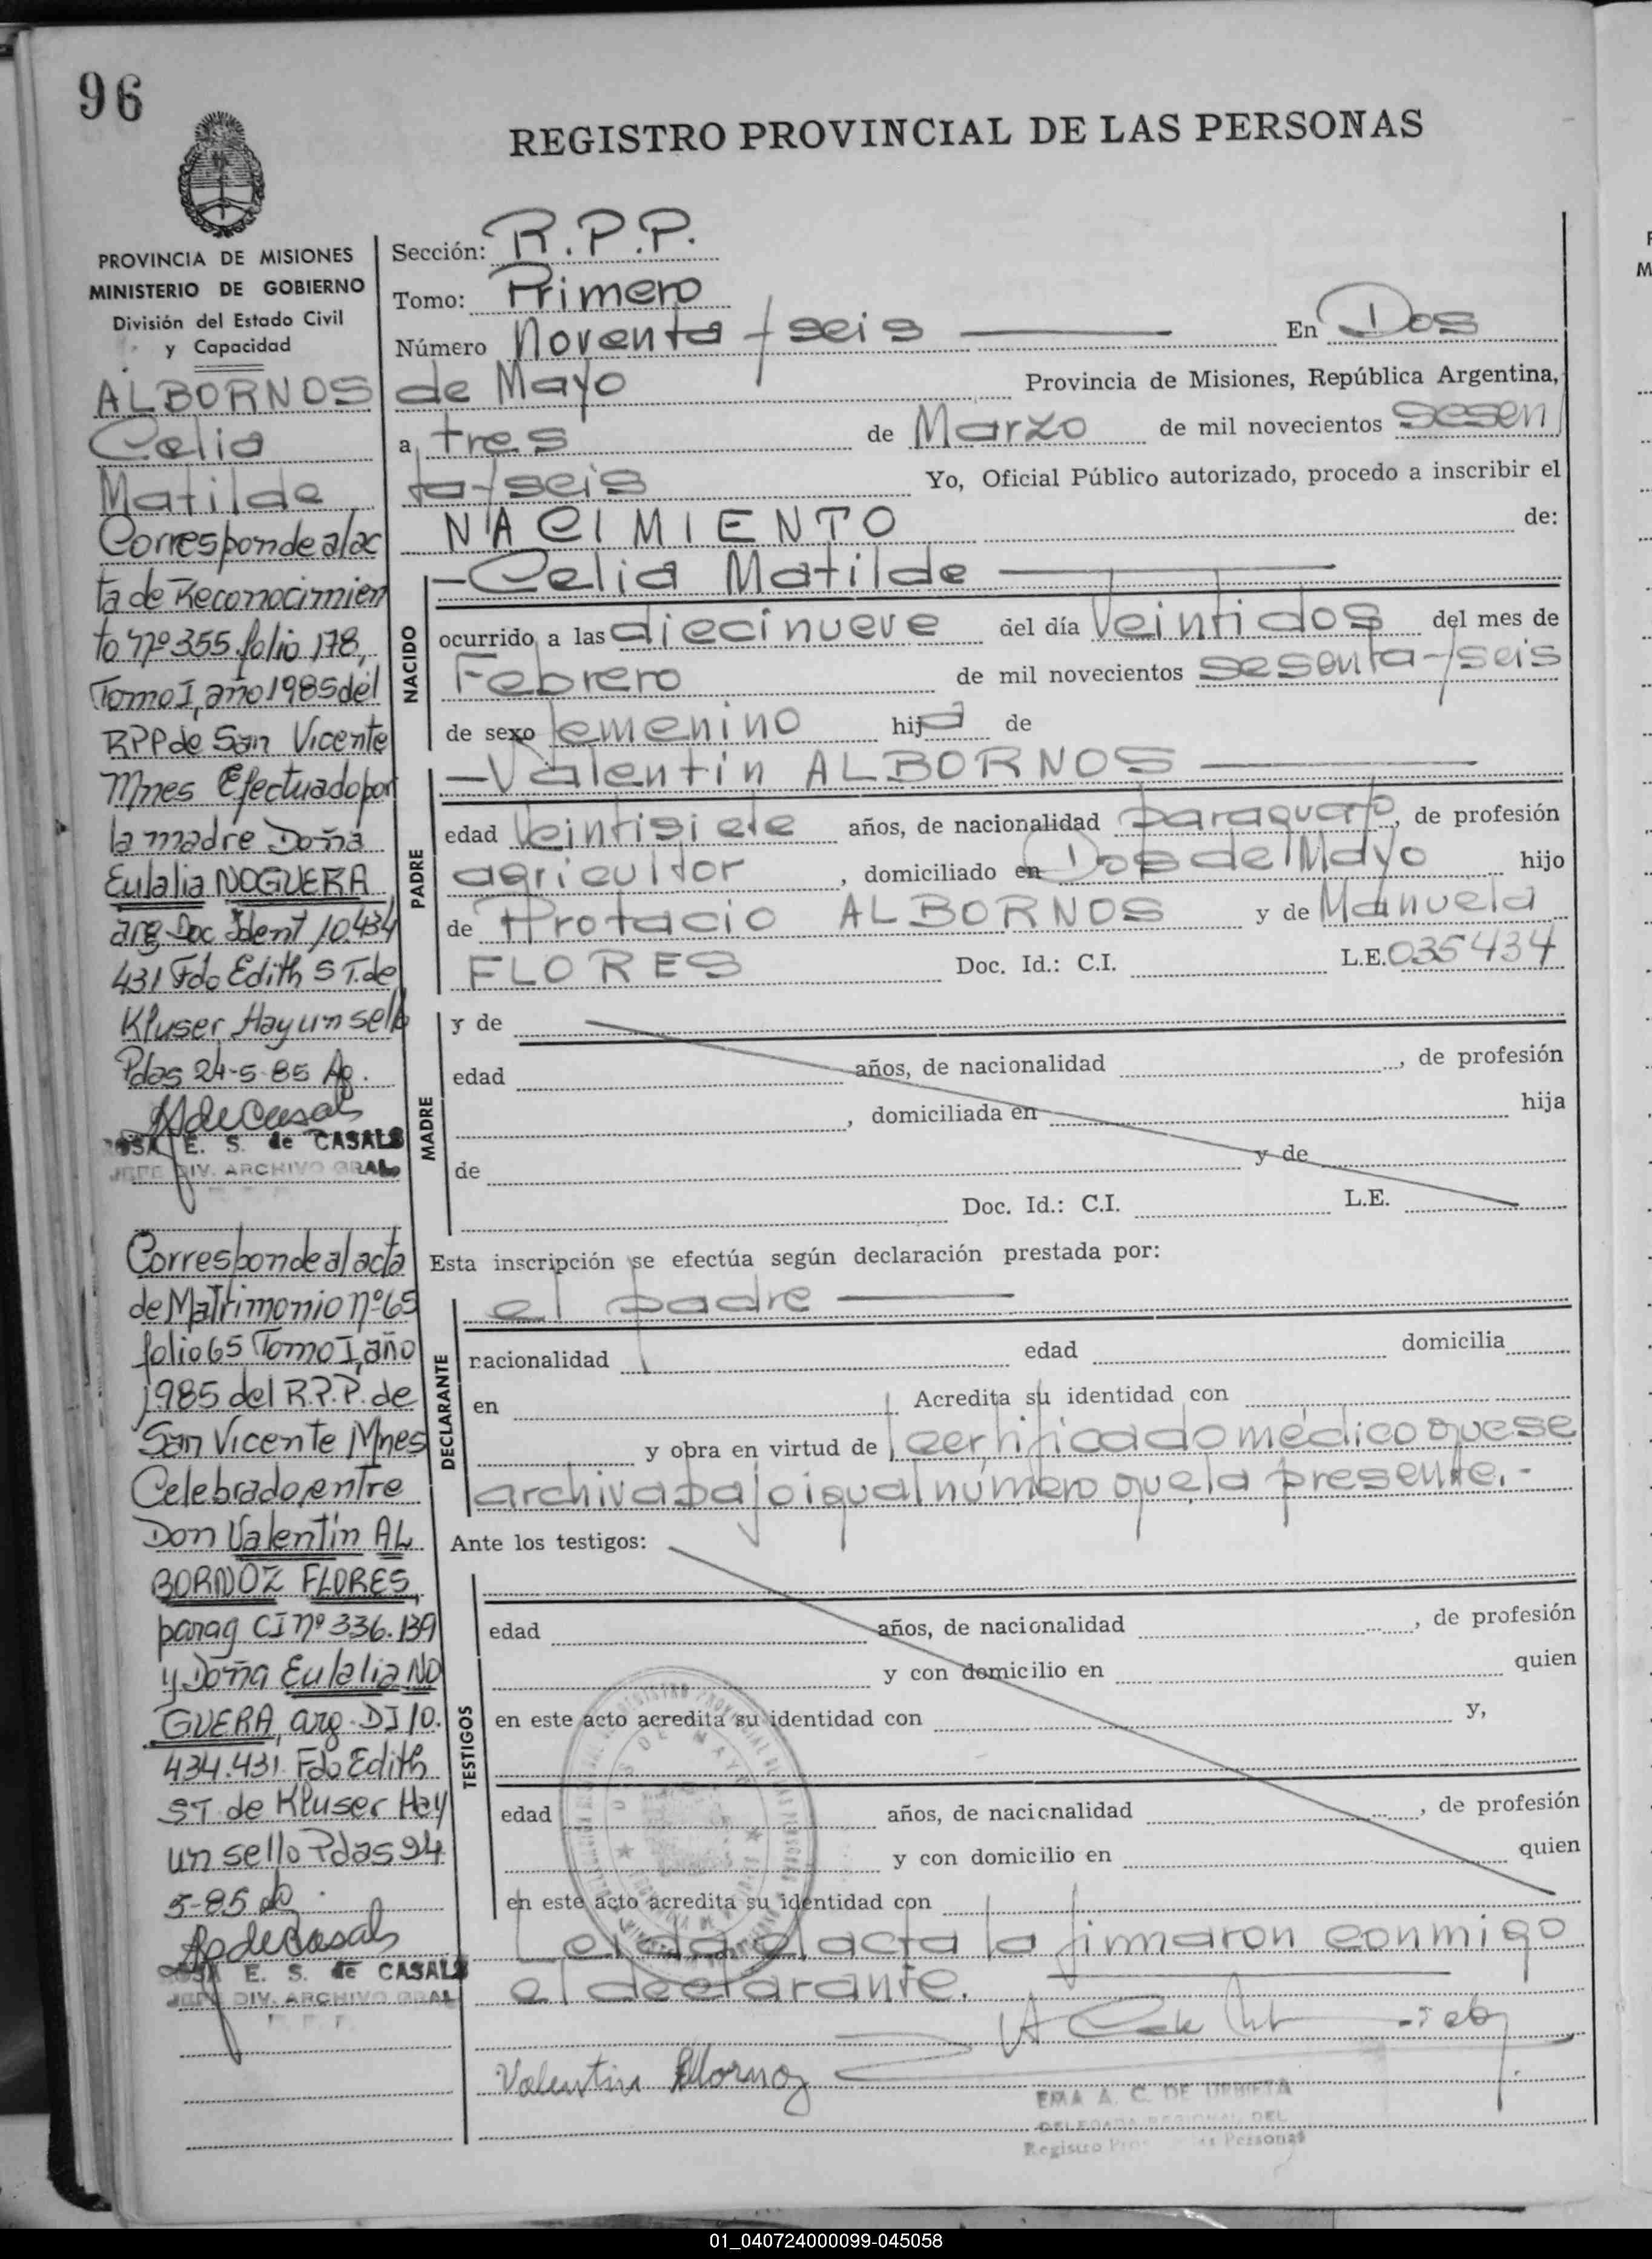 96
REGISTRO PROVINCIAL DE LAS PERSONAS
PROVINCIA DE MISIONES
MINISTERIO DE GOBIERNO
División del Estado Civil
y Capacidad
ALBORNOS
Celia
Matilde
Corresponde al ac
ta de Reconocimien
to nº 355 folio 178,
Tomo I, año 1985 del
RPP de San Vicente
Mnes Efectuado por
la madre Doña
Eulalia NOGUERA
arg Doc Ident 10.434
431 Fdo Edith S T. de
Kluser Hay un sello
Pdas 24-5-85 Ag.
AdeCasals
ROSA E. S. de CASALS
JEFE DIV. ARCHIVO GRAL.
Corresponde al acta
de Matrimonio nº 65
folio 65 Tomo I, año
1985 del R.P.P. de
San Vicente Mnes
Celebrado, entre
Don Valentín AL
BORNOZ FLORES,
parag CI nº 336.139
y Doña Eulalia NO
GUERA, arg. DI 10.
434.431. Fdo Edith
ST. de Kluser Hay
un sello Pdas 24
5-85
ROSA E. S. de CASALS
JEFE DIV. ARCHIVO GRAL
Sección: R.P.P.
Tomo: Primero
Número Noventa y seis En Dos
de Mayo Provincia de Misiones, República Argentina,
a tres de Marzo de mil novecientos sesen
ta y seis Yo, Oficial Público autorizado, procedo a inscribir el
NACIMIENTO de:
NACIDO
— Celia Matilde —
ocurrido a las diecinueve del día Veintidos del mes de
Febrero de mil novecientos sesenta y seis
de sexo femenino hija de
PADRE
— Valentín ALBORNOS —
edad Veintisiete años, de nacionalidad paraguayo, de profesión
agricultor, domiciliado en Dos de Mayo hijo
de Protacio ALBORNOS y de Manuela
FLORES Doc. Id.: C.I. L.E. 035434
MADRE
y de
edad años, de nacionalidad , de profesión
, domiciliada en hija
de y de
Doc. Id.: C.I. L.E.
Esta inscripción se efectúa según declaración prestada por:
DECLARANTE
el padre —
nacionalidad edad domicilia
en Acredita su identidad con
y obra en virtud de certificado médico que se
archiva bajo igual número que la presente.-
Ante los testigos:
TESTIGOS
edad años, de nacionalidad , de profesión
y con domicilio en quien
en este acto acredita su identidad con y,
edad años, de nacionalidad , de profesión
y con domicilio en quien
en este acto acredita su identidad con
Leída el acta la firmaron conmigo
el declarante.
Valentin Albornoz
EMA A. C. DE URBIETA
DELEGADA REGIONAL DEL
Registro Personas
DOS DE MAYO
01_040724000099-045058